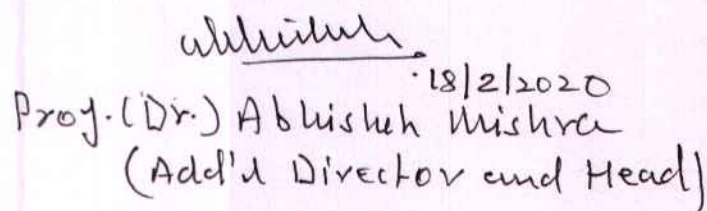 Abhishek
18/2/2020
Prof. (Dr.) Abhishek Mishra
(Add'l Director and Head)